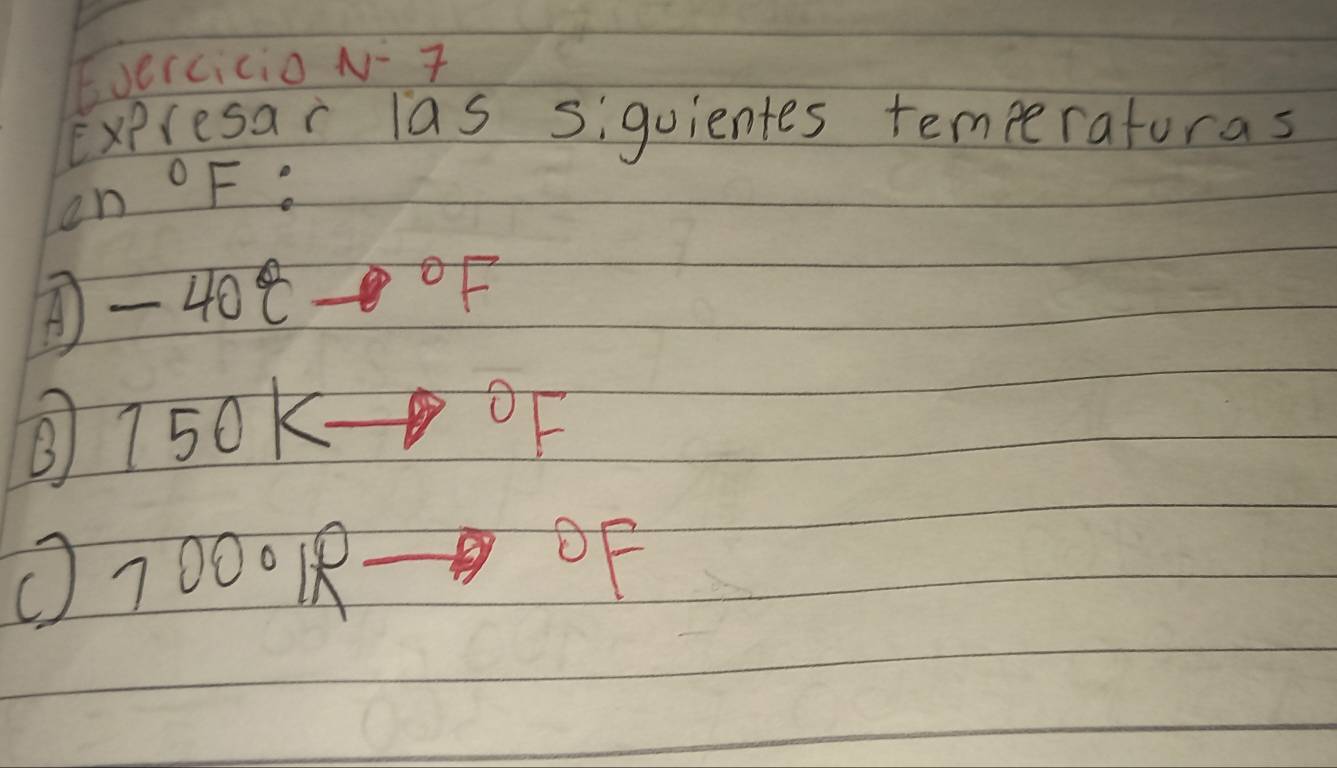 Ejercicio N- 7
Expresar las siguientes temperaturas
en °F:
A) - 40℃ → °F
B) 150 K → °F
C) 100°R → °F